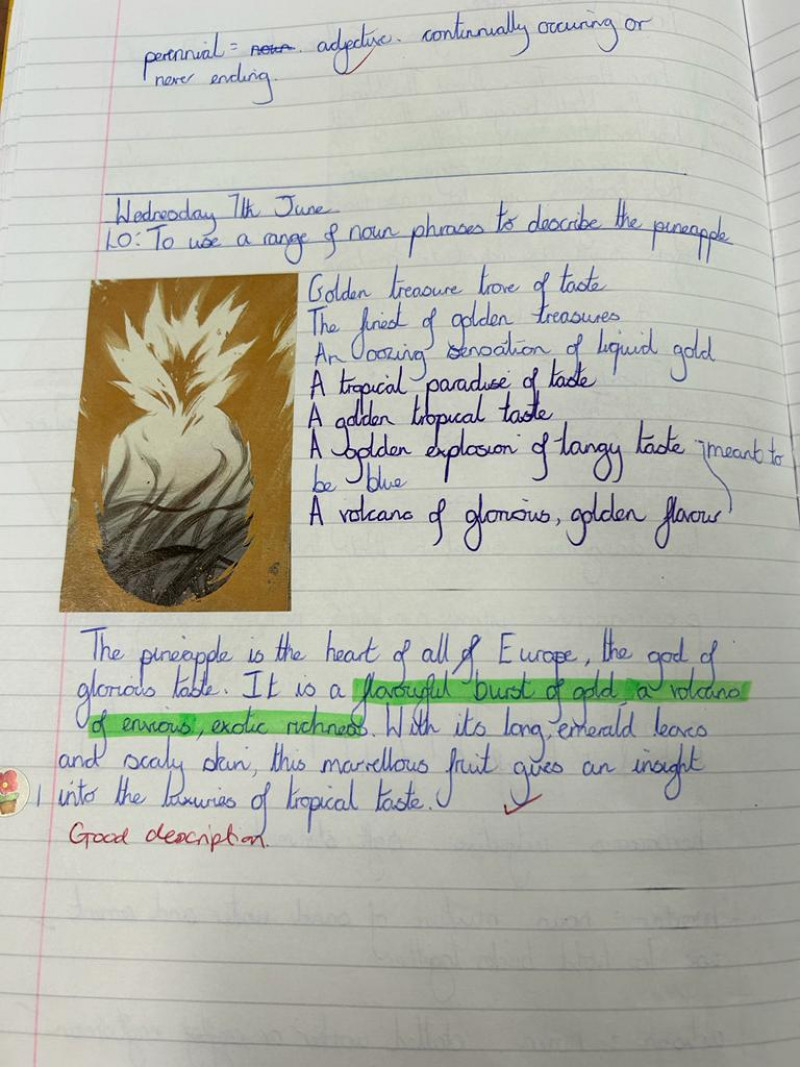 perennial = noun. adjective. continually occuring or
never ending.
Wednesday 7th June
LO: To use a range of noun phrases to describe the pineapple
Golden treasure trove of taste
The finest of golden treasures
An oozing sensation of liquid gold
A tropical paradise of taste
A golden tropical taste
A golden explosion of tangy taste meant to
be blue
A volcano of glorious, golden flavour
The pineapple is the heart of all of Europe, the god of
glorious taste. It is a flavourful burst of gold, a volcano
of envious, exotic richness. With its long, emerald leaves
and scaly skin, this marvellous fruit gives an insight
into the luxuries of tropical taste.
Good description.